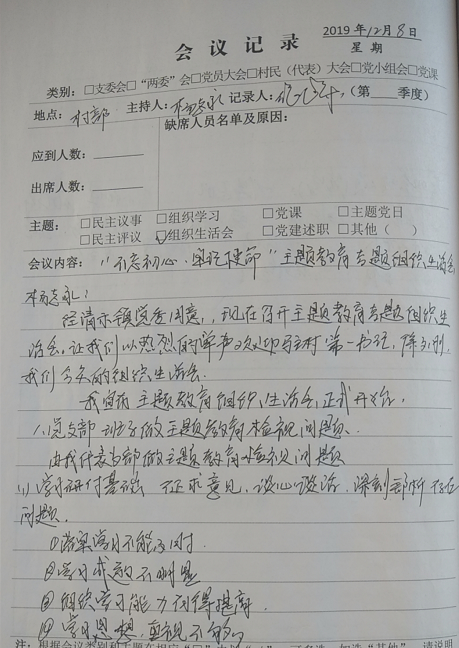 2019年12月8日
会议记录 星期
类别：□支委会□“两委”会□党员大会□村民（代表）大会□党小组会□党课
地点：村部 主持人： 记录人： （第 季度）
缺席人员名单及原因：
应到人数：
出席人数：
主题：□民主议事 □组织学习 □党课 □主题党日
□民主评议 ☑组织生活会 □党建述职 □其他（ ）
会议内容：“不忘初心·牢记使命”主题教育专题组织生活会
经请示镇党委同意，现在召开主题教育专题组织生
活会。让我们以热烈的掌声欢迎驻村第一书记，
我们今天的组织生活会。
我宣布 主题教育组织生活会正式开始.
1.党支部班子做主题教育检视问题.
由我代表支部做主题教育检视问题
(1)学习研讨基础 征求意见，谈心谈话，深刻剖析存在
问题.
①落实学习不能及时.
②学习成效不明显
③组织学习能力有待提高.
④学习思想 重视不够
注：根据会议类别和主题在相应“□”内